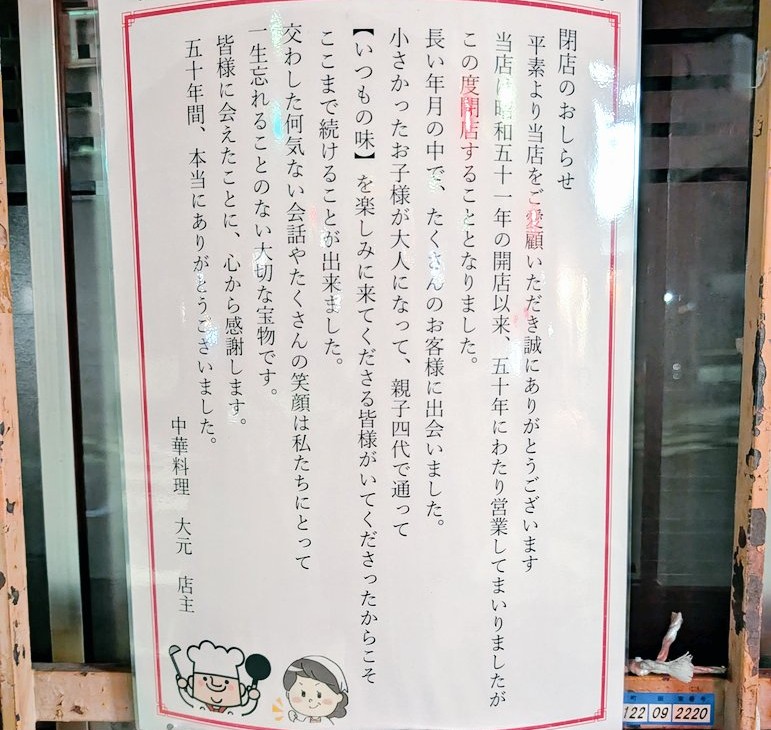 閉店のおしらせ
平素より当店をご愛顧いただき誠にありがとうございます
当店は昭和五十一年の開店以来、五十年にわたり営業してまいりましたが
この度閉店することとなりました。
長い年月の中で、たくさんのお客様に出会いました。
小さかったお子様が大人になって、親子四代で通って
【いつもの味】を楽しみに来てくださる皆様がいてくださったからこそ
ここまで続けることが出来ました。
交わした何気ない会話やたくさんの笑顔は私たちにとって
一生忘れることのない大切な宝物です。
皆様に会えたことに、心から感謝します。
五十年間、本当にありがとうございました。
中華料理 大元 店主
122 09 2220